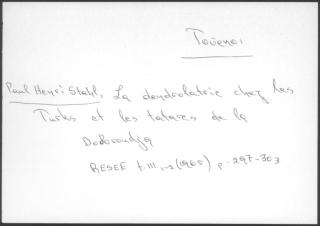 Paul Henri Stahl, La dendrolatrie chez les
Turks et les tatares de la
Dobroudja
RESEE t. III, 1-2 (1965) p. 297-303